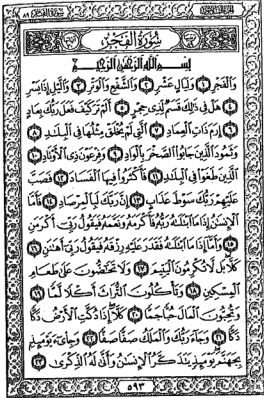 سُورَةُ الفَجْرِ
بِسْمِ اللَّهِ الرَّحْمَٰنِ الرَّحِيمِ
وَالْفَجْرِ ١ وَلَيَالٍ عَشْرٍ ٢ وَالشَّفْعِ وَالْوَتْرِ ٣ وَاللَّيْلِ إِذَا يَسْرِ
٤ هَلْ فِي ذَٰلِكَ قَسَمٌ لِّذِي حِجْرٍ ٥ أَلَمْ تَرَ كَيْفَ فَعَلَ رَبُّكَ بِعَادٍ
٦ إِرَمَ ذَاتِ الْعِمَادِ ٧ الَّتِي لَمْ يُخْلَقْ مِثْلُهَا فِي الْبِلَادِ ٨
وَثَمُودَ الَّذِينَ جَابُوا الصَّخْرَ بِالْوَادِ ٩ وَفِرْعَوْنَ ذِي الْأَوْتَادِ ١٠
الَّذِينَ طَغَوْا فِي الْبِلَادِ ١١ فَأَكْثَرُوا فِيهَا الْفَسَادَ ١٢ فَصَبَّ
عَلَيْهِمْ رَبُّكَ سَوْطَ عَذَابٍ ١٣ إِنَّ رَبَّكَ لَبِالْمِرْصَادِ ١٤ فَأَمَّا
الْإِنسَانُ إِذَا مَا ابْتَلَاهُ رَبُّهُ فَأَكْرَمَهُ وَنَعَّمَهُ فَيَقُولُ رَبِّي أَكْرَمَنِ
١٥ وَأَمَّا إِذَا مَا ابْتَلَاهُ فَقَدَرَ عَلَيْهِ رِزْقَهُ فَيَقُولُ رَبِّي أَهَانَنِ ١٦
كَلَّا بَل لَّا تُكْرِمُونَ الْيَتِيمَ ١٧ وَلَا تَحَاضُّونَ عَلَىٰ طَعَامِ
الْمِسْكِينِ ١٨ وَتَأْكُلُونَ التُّرَاثَ أَكْلًا لَّمًّا ١٩
وَتُحِبُّونَ الْمَالَ حُبًّا جَمًّا ٢٠ كَلَّا إِذَا دُكَّتِ الْأَرْضُ دَكًّا
دَكًّا ٢١ وَجَاءَ رَبُّكَ وَالْمَلَكُ صَفًّا صَفًّا ٢٢ وَجِيءَ يَوْمَئِذٍ
بِجَهَنَّمَ يَوْمَئِذٍ يَتَذَكَّرُ الْإِنسَانُ وَأَنَّىٰ لَهُ الذِّكْرَىٰ ٢٣
٥٩٣